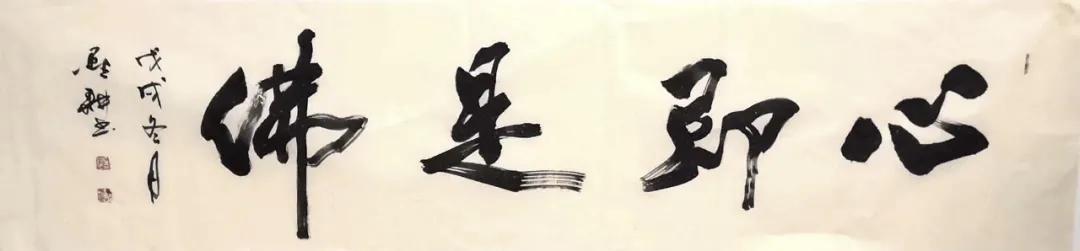 心即是佛
戊戌冬月
书